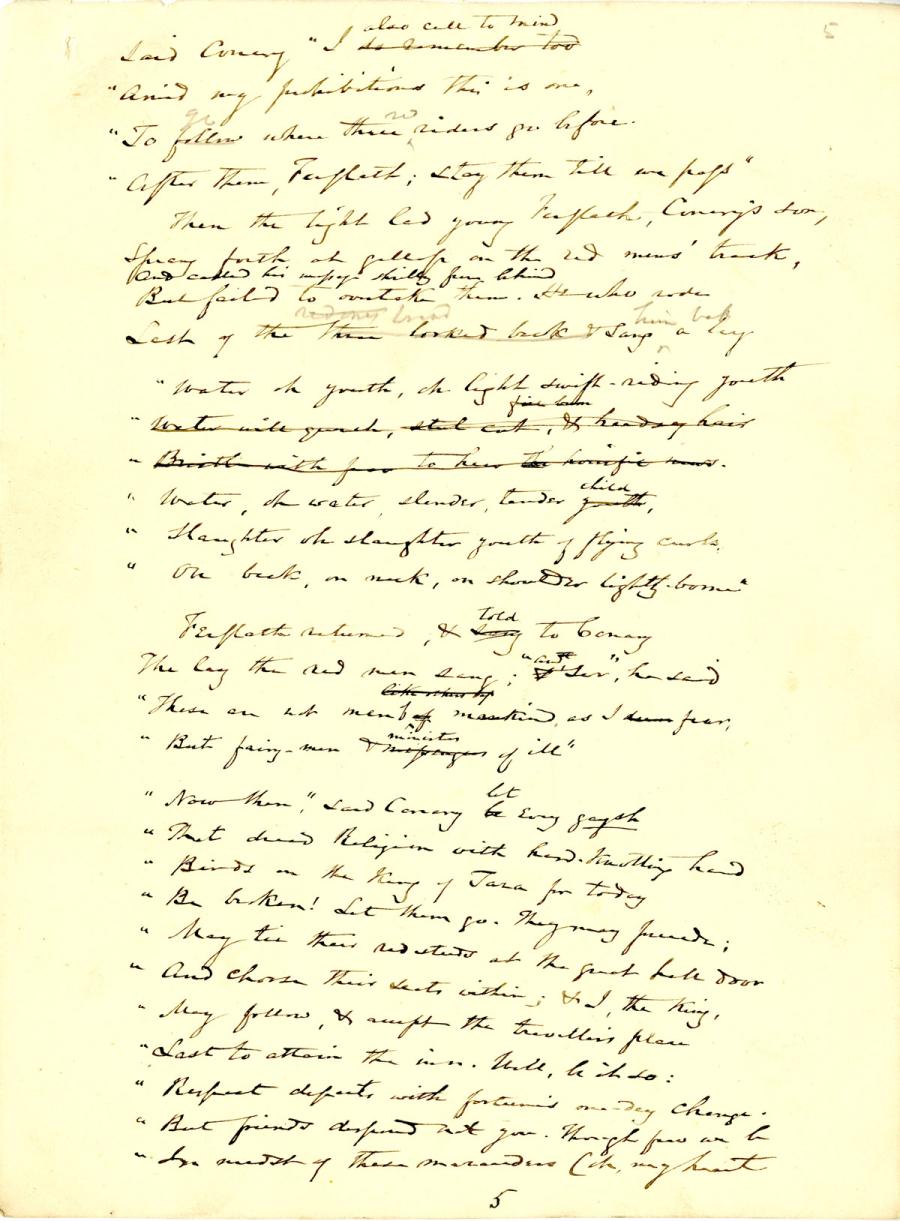 5
also call to mind
Said Conary "I do remember too
"Amid my prohibitions this is one,
go red
"To follow where three riders go before.
"After them, Ferflath; stay them till we pass"
Then the light lad young Ferflath, Conary's son,
Sprang forth at gallop on the red mens' track,
And called his message shrilly from behind
But failed to overtake them. He who rode
red ones him back
Last of the three looked back & sang a lay
"Water oh youth, oh light swift-riding youth
"Water will quench, steel cut, & head hair
"Bristle with fear to hear the horrific news.
child
"Water, oh water, slender, tender youth,
"Slaughter oh slaughter youth of flying curls,
"On back, on neck, on shoulder lightly-borne"
told
Ferflath returned, & sang to Conary
The lay the red man sang; "and "Sir", he said
"These are not men of mankind, as I deem fear,
ministers
"But fairy-men & messengers of ill"
let
"Now then", said Conary be Every gaysh
"That dread Religion with hard-knotting hand
"Binds on the King of Tara for today
"Be broken! Let them go. They may precede;
"May tie their red steeds at the great hall door
"And choose their seats within; & I, the King,
"May follow, & accept the traveller's place
"Last to attain the inn. Well, be it so:
"Respect departs with fortune's one-day change.
"But friends despond not you. Though few we be
"In midst of these marauders (oh, my heart
5